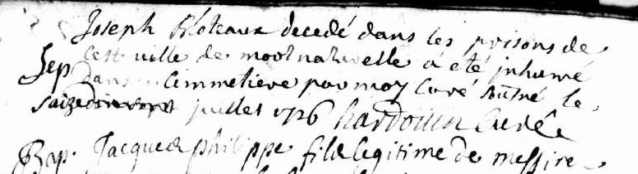 Joseph Bloteaux decedé dans les prisons de
Sep. cest ville de mort naturelle a eté inhumé
dans cimmetiere par moy Curé sousné le
saize juillet 1726 hardouin Curé
Bap. Jacque philippe fils legitime de messire